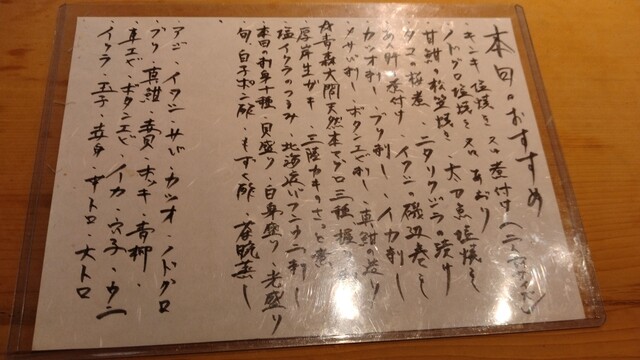 本日のおすすめ
・キンキ 塩焼き 又は 煮付け (二人サイズ)
・ノドグロ塩焼き 又は あぶり
・甘鯛の松笠焼き・太刀魚塩焼き
・タコの桜煮・ニタリクジラの漬け
・あん肝煮付け・イワシの磯辺巻き
・カツオ刺し・ブリ刺し・イカ刺し
・〆サバ刺し・ボタンエビ刺し・真鯛の造り
☆青森大間天然本マグロ三種握り
・厚岸生ガキ・三陸カキのさっと煮
・塩イクラのつまみ・北海道バフンウニ刺し
・本日の刺身十種・貝盛り・白身盛り・光盛り
・旬の白子ポン酢・もずく酢・茶碗蒸し
・アジ・イワシ・サバ・カツオ・ノドグロ
・ブリ・真鯛・赤貝・ホッキ・青柳・
・車エビ・ボタンエビ・イカ・穴子・ウニ
・イクラ・玉子・赤身・中トロ・大トロ